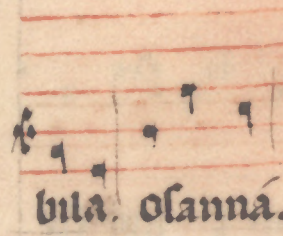 bila. osanná.